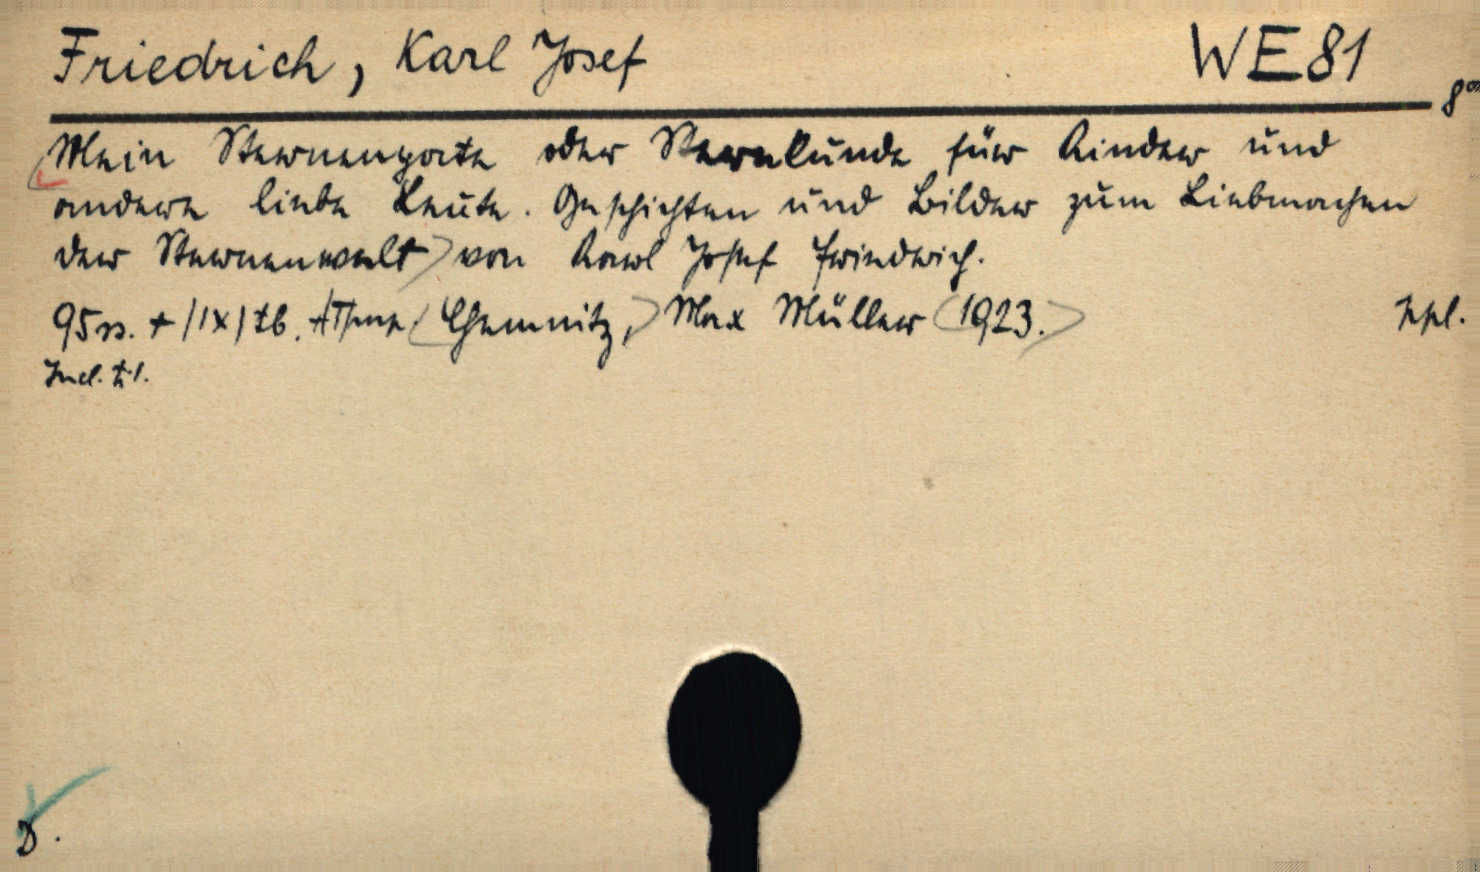 Friedrich, Karl Josef WE81
8°
Mein Sternenpate oder Sternkunde für Kinder und
andere liebe Leute. Geschichten und Bilder zum Liebmachen
der Sternenwelt von Karl Josef Friedrich.
95ss. + /1x/ tb. (Chemnitz,) Max Müller (1923.)
Incl. t. l.
D.